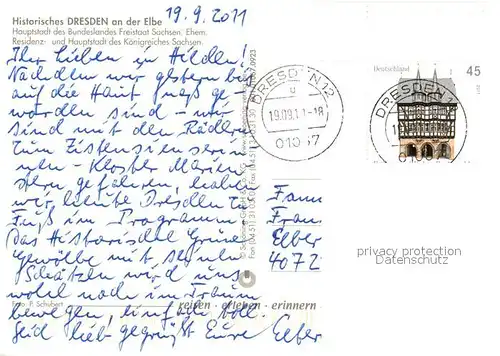 19.9.2011
Historisches DRESDEN an der Elbe
Hauptstadt des Bundeslandes Freistaat Sachsen. Ehem.
Residenz- und Hauptstadt des Königreiches Sachsen.
Ihr Lieben zu Hilden!
Nachdem wir gestern bis
auf die Haut naß ge-
worden sind – wir
sind mit den Rädern
zum Zistensienserin
nen-Kloster Marien
stern gefahren, haben
wir heute Dresden zu
Fuß im Programm.
Das Historische Grüne
Gewölbe mit seinen
Schätzen wird uns
wohl noch im Traum
bewegen, einfach toll.
Seid lieb gegrüßt Eure Elber
Foto P. Schubert
reisen · erleben · erinnern
DRESDEN 12
19.09.11-18
Deutschland
45
DRESDEN
Fam
Frau
Elber
4072
privacy protection
Datenschutz